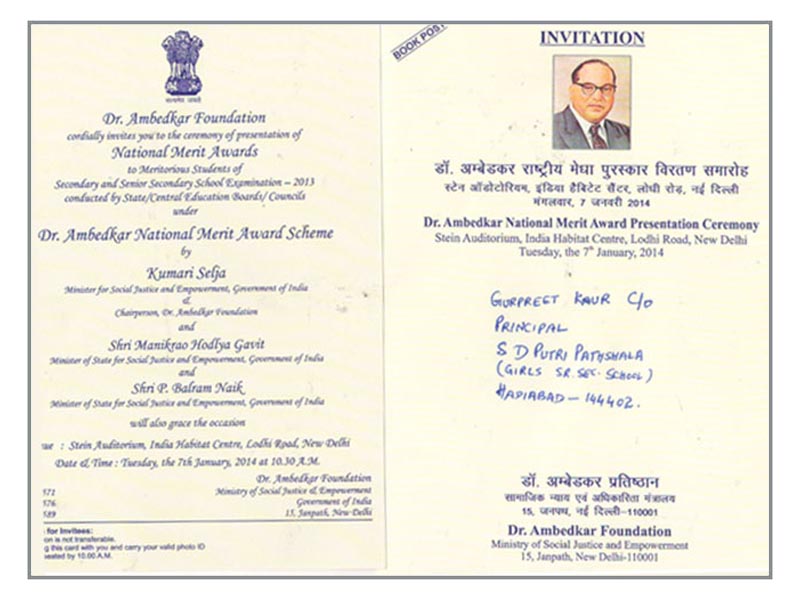 सत्यमेव जयते
Dr. Ambedkar Foundation
cordially invites you to the ceremony of presentation of
National Merit Awards
to Meritorious Students of
Secondary and Senior Secondary School Examination – 2013
conducted by State/Central Education Boards/ Councils
under
Dr. Ambedkar National Merit Award Scheme
by
Kumari Selja
Minister for Social Justice and Empowerment, Government of India
&
Chairperson, Dr. Ambedkar Foundation
and
Shri Manikrao Hodlya Gavit
Minister of State for Social Justice and Empowerment, Government of India
and
Shri P. Balram Naik
Minister of State for Social Justice and Empowerment, Government of India
will also grace the occasion
ue : Stein Auditorium, India Habitat Centre, Lodhi Road, New Delhi
Date & Time : Tuesday, the 7th January, 2014 at 10.30 A.M.
Dr. Ambedkar Foundation
572 Ministry of Social Justice & Empowerment
576 Government of India
589 15, Janpath, New Delhi
for Invitees:
on is not transferable.
g this card with you and carry your valid photo ID
seated by 10.00 A.M.
BOOK POST
INVITATION
डॉ. अम्बेडकर राष्ट्रीय मेघा पुरस्कार विरतण समारोह
स्टेन ऑडोटोरियम, इंडिया हैबिटेट सैंटर, लोघी रोड़, नई दिल्ली
मंगलवार, 7 जनवरी 2014
Dr. Ambedkar National Merit Award Presentation Ceremony
Stein Auditorium, India Habitat Centre, Lodhi Road, New Delhi
Tuesday, the 7th January, 2014
GURPREET KAUR C/O
PRINCIPAL
S D PUTRI PATHSHALA
(GIRLS SR. SEC. SCHOOL)
HADIABAD – 144402.
डॉ. अम्बेडकर प्रतिष्ठान
सामाजिक न्याय एवं अधिकारिता मंत्रालय
15, जनपथ, नई दिल्ली–110001
Dr. Ambedkar Foundation
Ministry of Social Justice and Empowerment
15, Janpath, New Delhi-110001